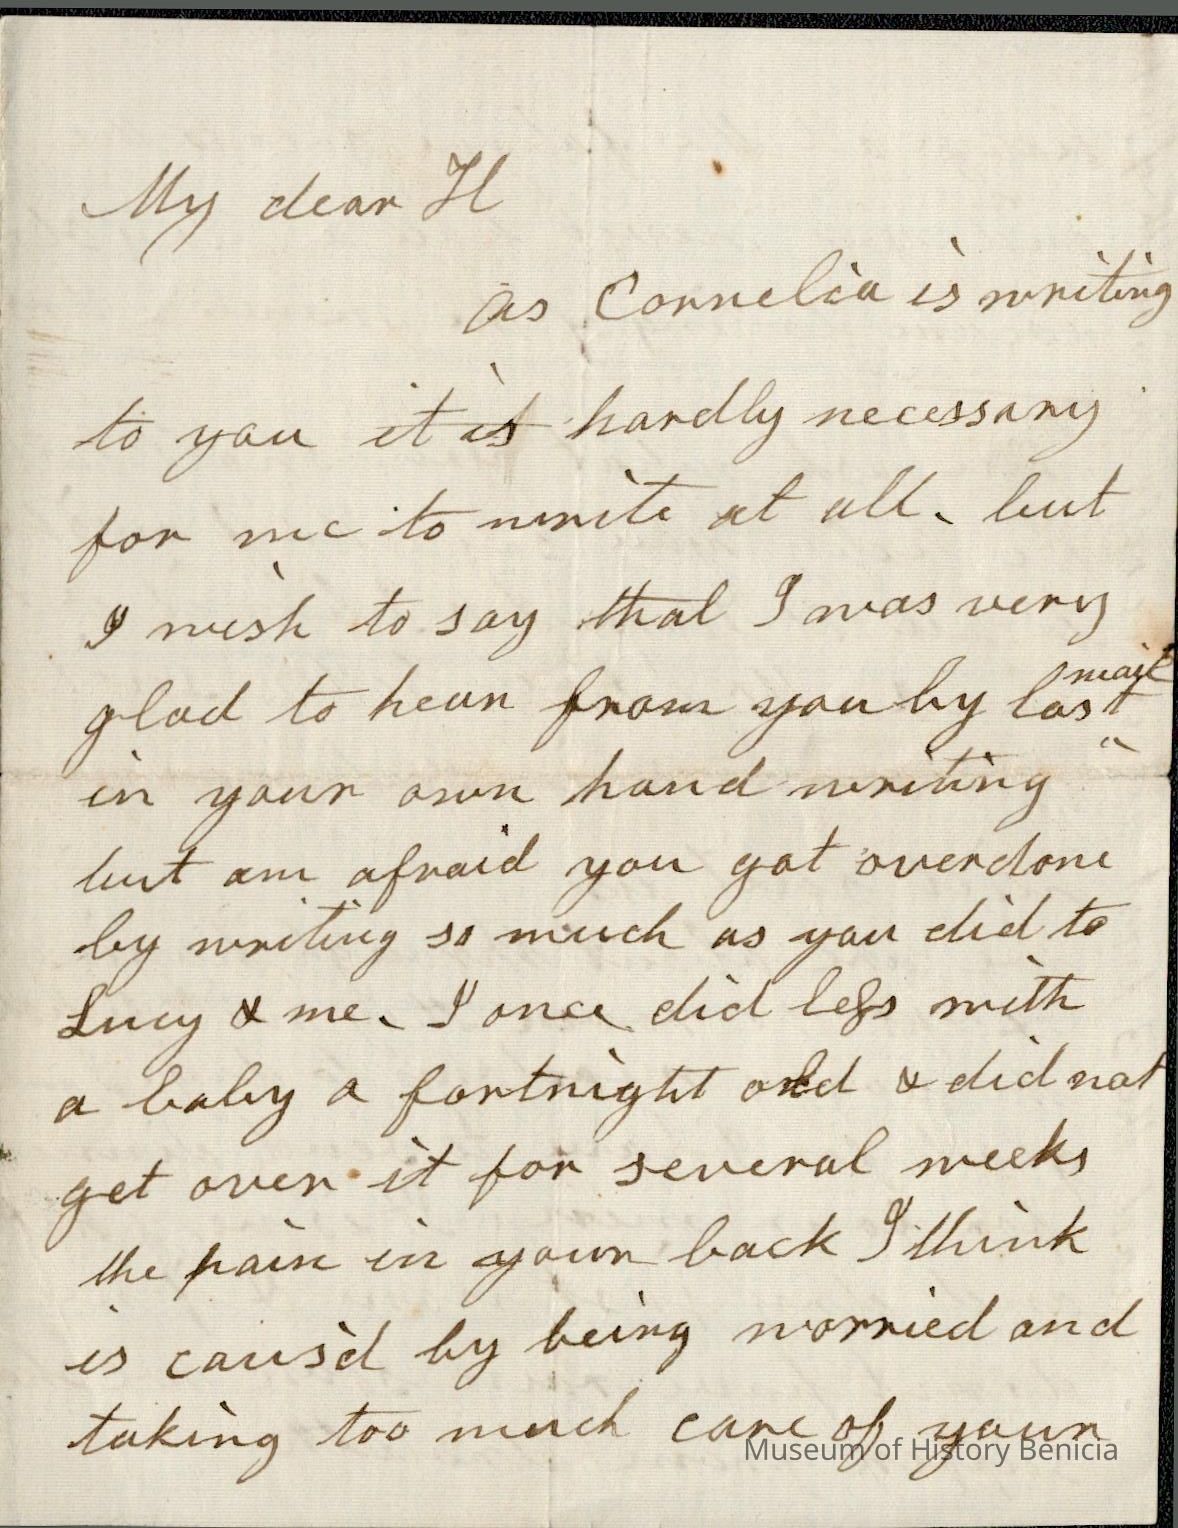 My dear H
as Cornelia is writing
to you it is hardly necessary
for me to write at all. but
I wish to say that I was very
mail
glad to hear from you by last
in your own hand writing "
but am afraid you got overdone
by writing so much as you did to
Lucy & me. I once did less with
a baby a fortnight old & did not
get over it for several weeks
the pain in your back I think
is caus'd by being worried and
taking too much care of your
Museum of History Benicia